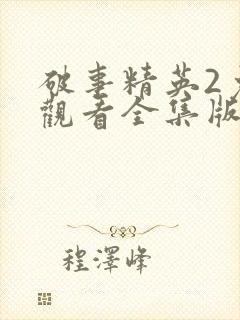 破事精英2
觀看全集版
程澤峰